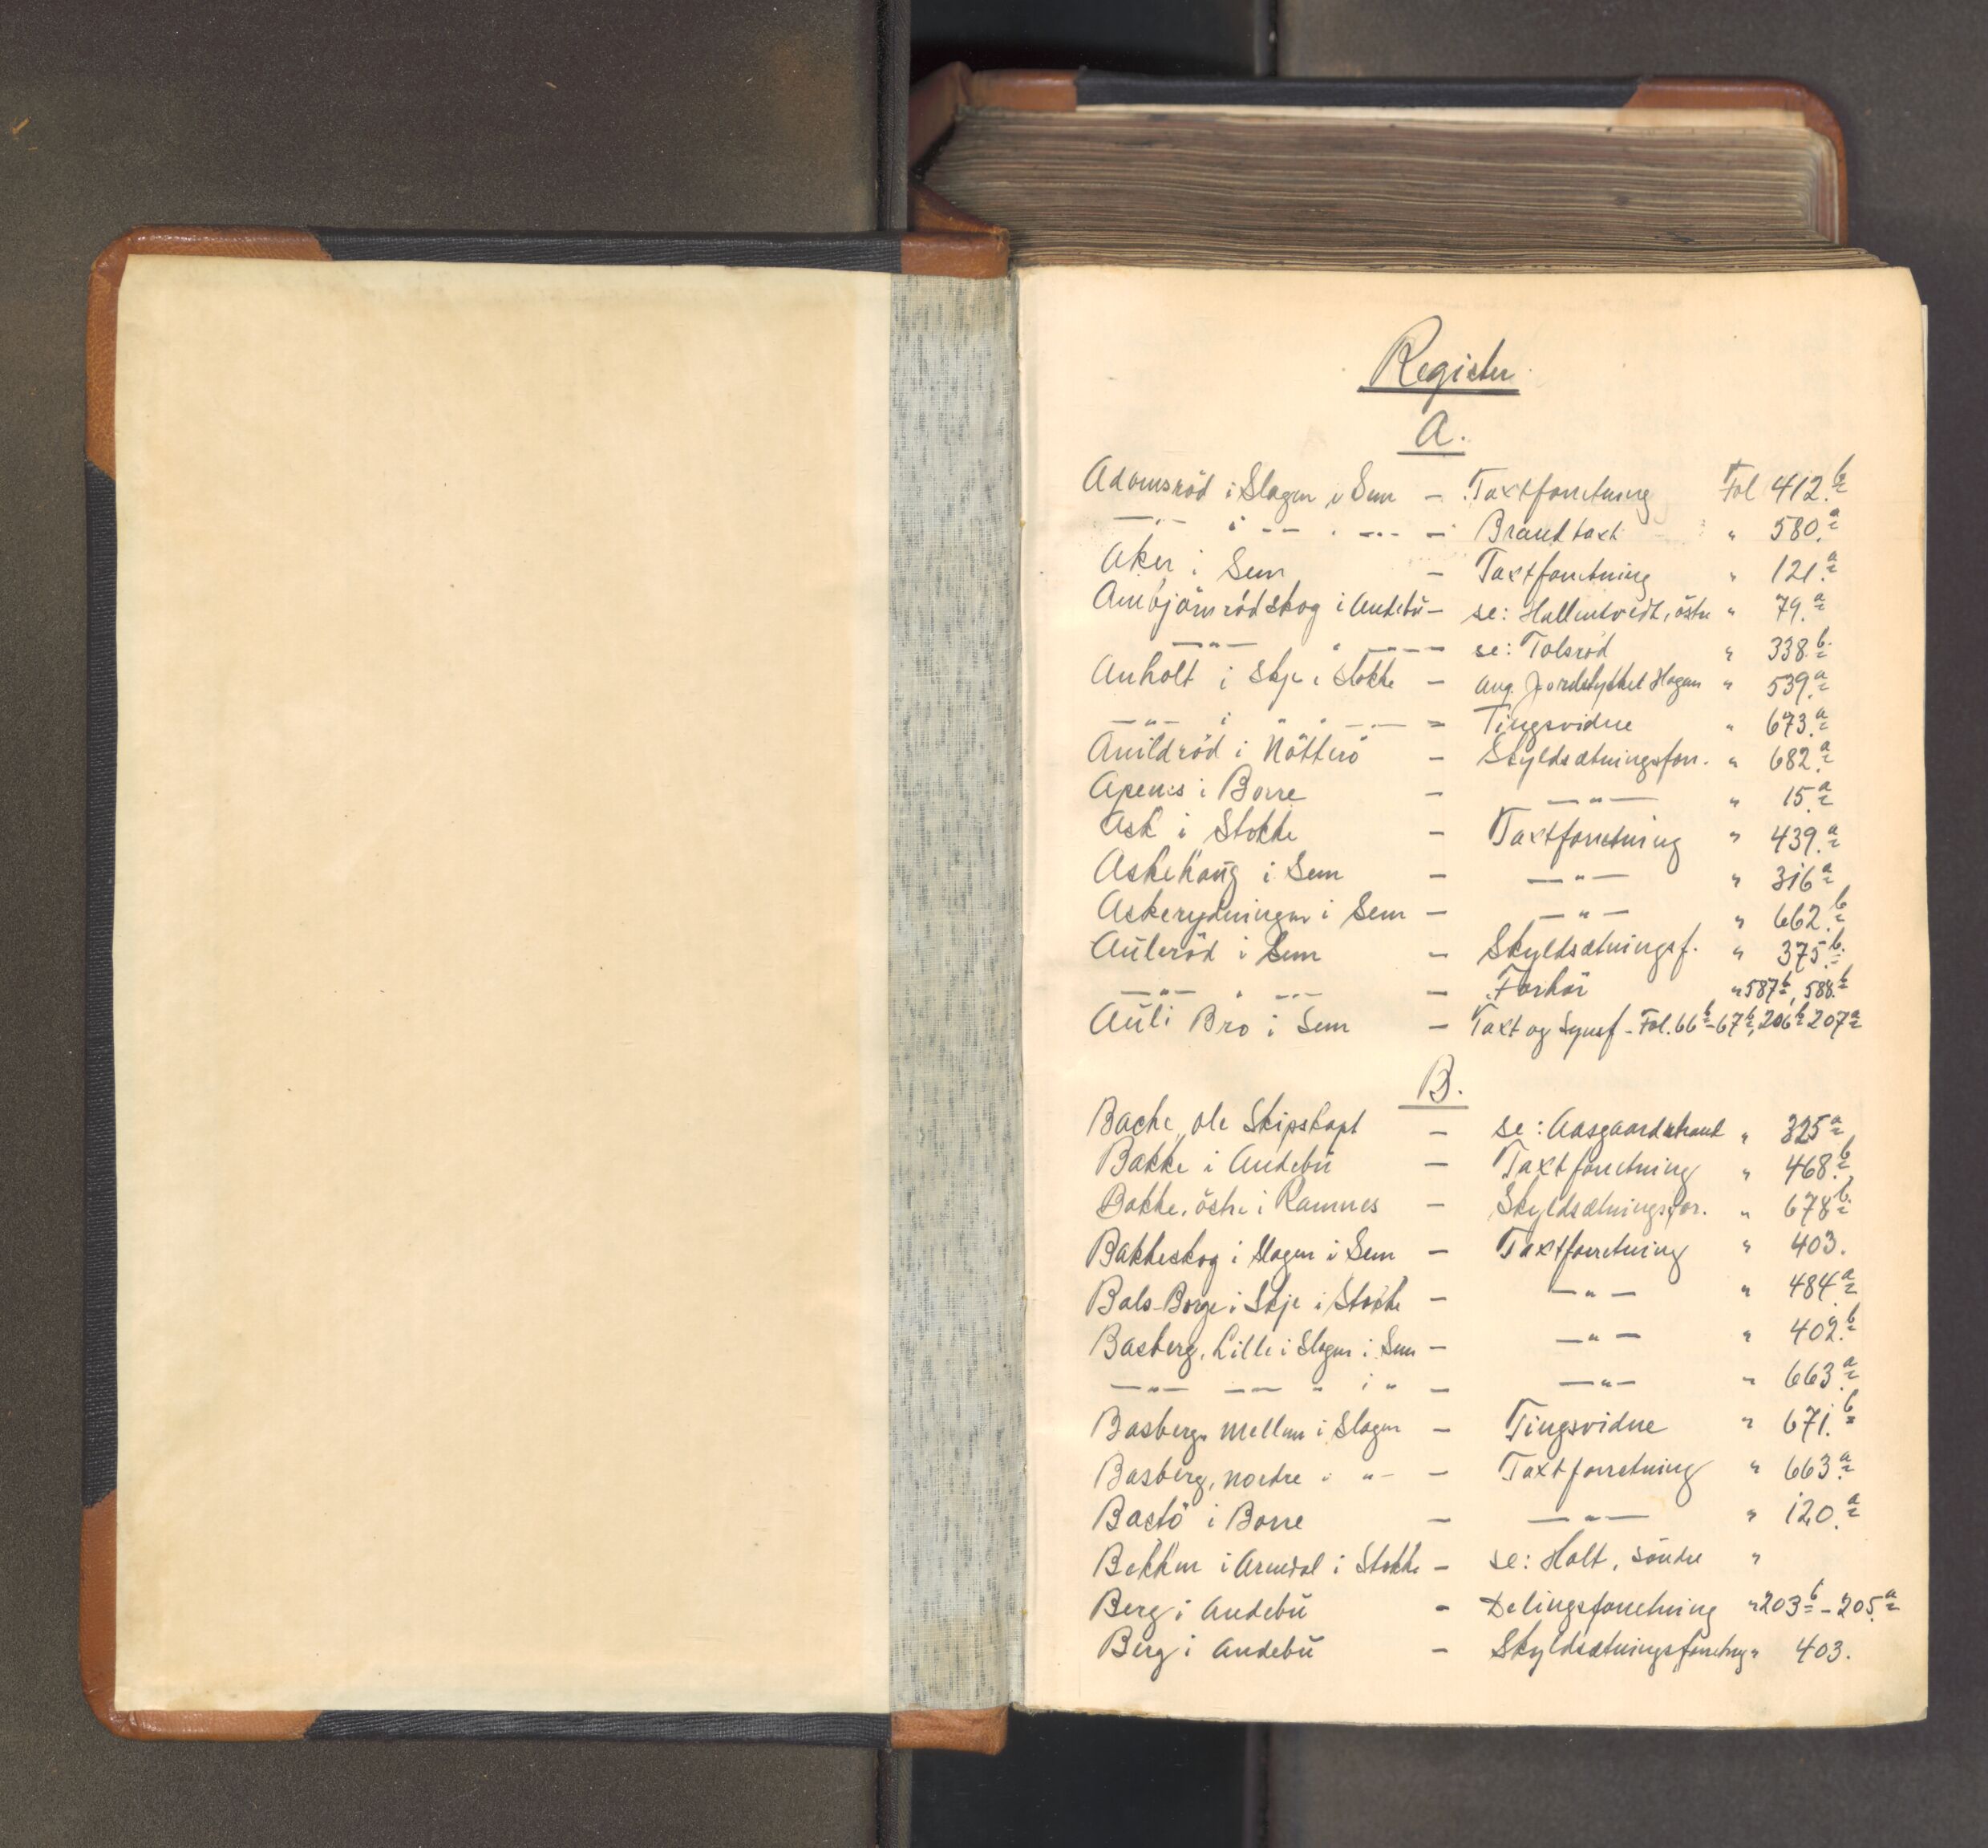 Register.
A.
Adamsröd i Slagen i Sem - Taxtforretning Fol 412.b
—"— i —— . —-- - Brandtaxt " 580.a
Aker i Sem - Taxtforretning " 121.a
Ambjörnrödskog i Andebu - se: Hallentvedt, östre " 79.a
—"— " ---- se: Tolsröd " 338.b
Anholt i Skje i Stokke - ang. Jordstykket Hagen " 539.a
—"— i " " —-— = Tingsvidne " 673.a
Anildröd i Nötterö - Skyldsætningsforr. " 682.a
Apenes i Borre - —"— " 15.a
Ask i Stokke - Taxtforretning " 439.a
Askehaug i Sem - —"— " 316a
Askerydningen i Sem - —"— " 662.b
Auleröd i Sem - Skyldsætningsf. " 375.b
—"— " —"— - Forhör " 587b, 588.b
Auli Bro i Sem - Taxt og Synsf - Fol. 66b-67b, 206b 207a
B.
Bache, Ole Skipskapt - se: Aasgaardstrand " 325a
Bakke i Andebu - Taxtforretning " 468.b
Bakke, östre i Ramnes - Skyldsætningsfor. " 678b
Bakkeskog i Slagen i Sem - Taxtforretning " 403.
Bals-Borge i Skje i Stokke - —"— " 484.a
Basberg, Lille i Slagen i Sem - —"— " 402.b
—"— —— " i " - —"— " 663.a
Basberg, mellem i Slagen - Tingsvidne " 671.b
Basberg, nordre i "- - Taxtforretning " 663.a
Bastö i Borre - —"— " 120.a
Bekken i Arnedal i Stokke - se: Holt, söndre "
Berg i Andebu - Delingsforretning " 203b - 205.a
Berg i Andebu - Skyldsætningsforretng " 403.